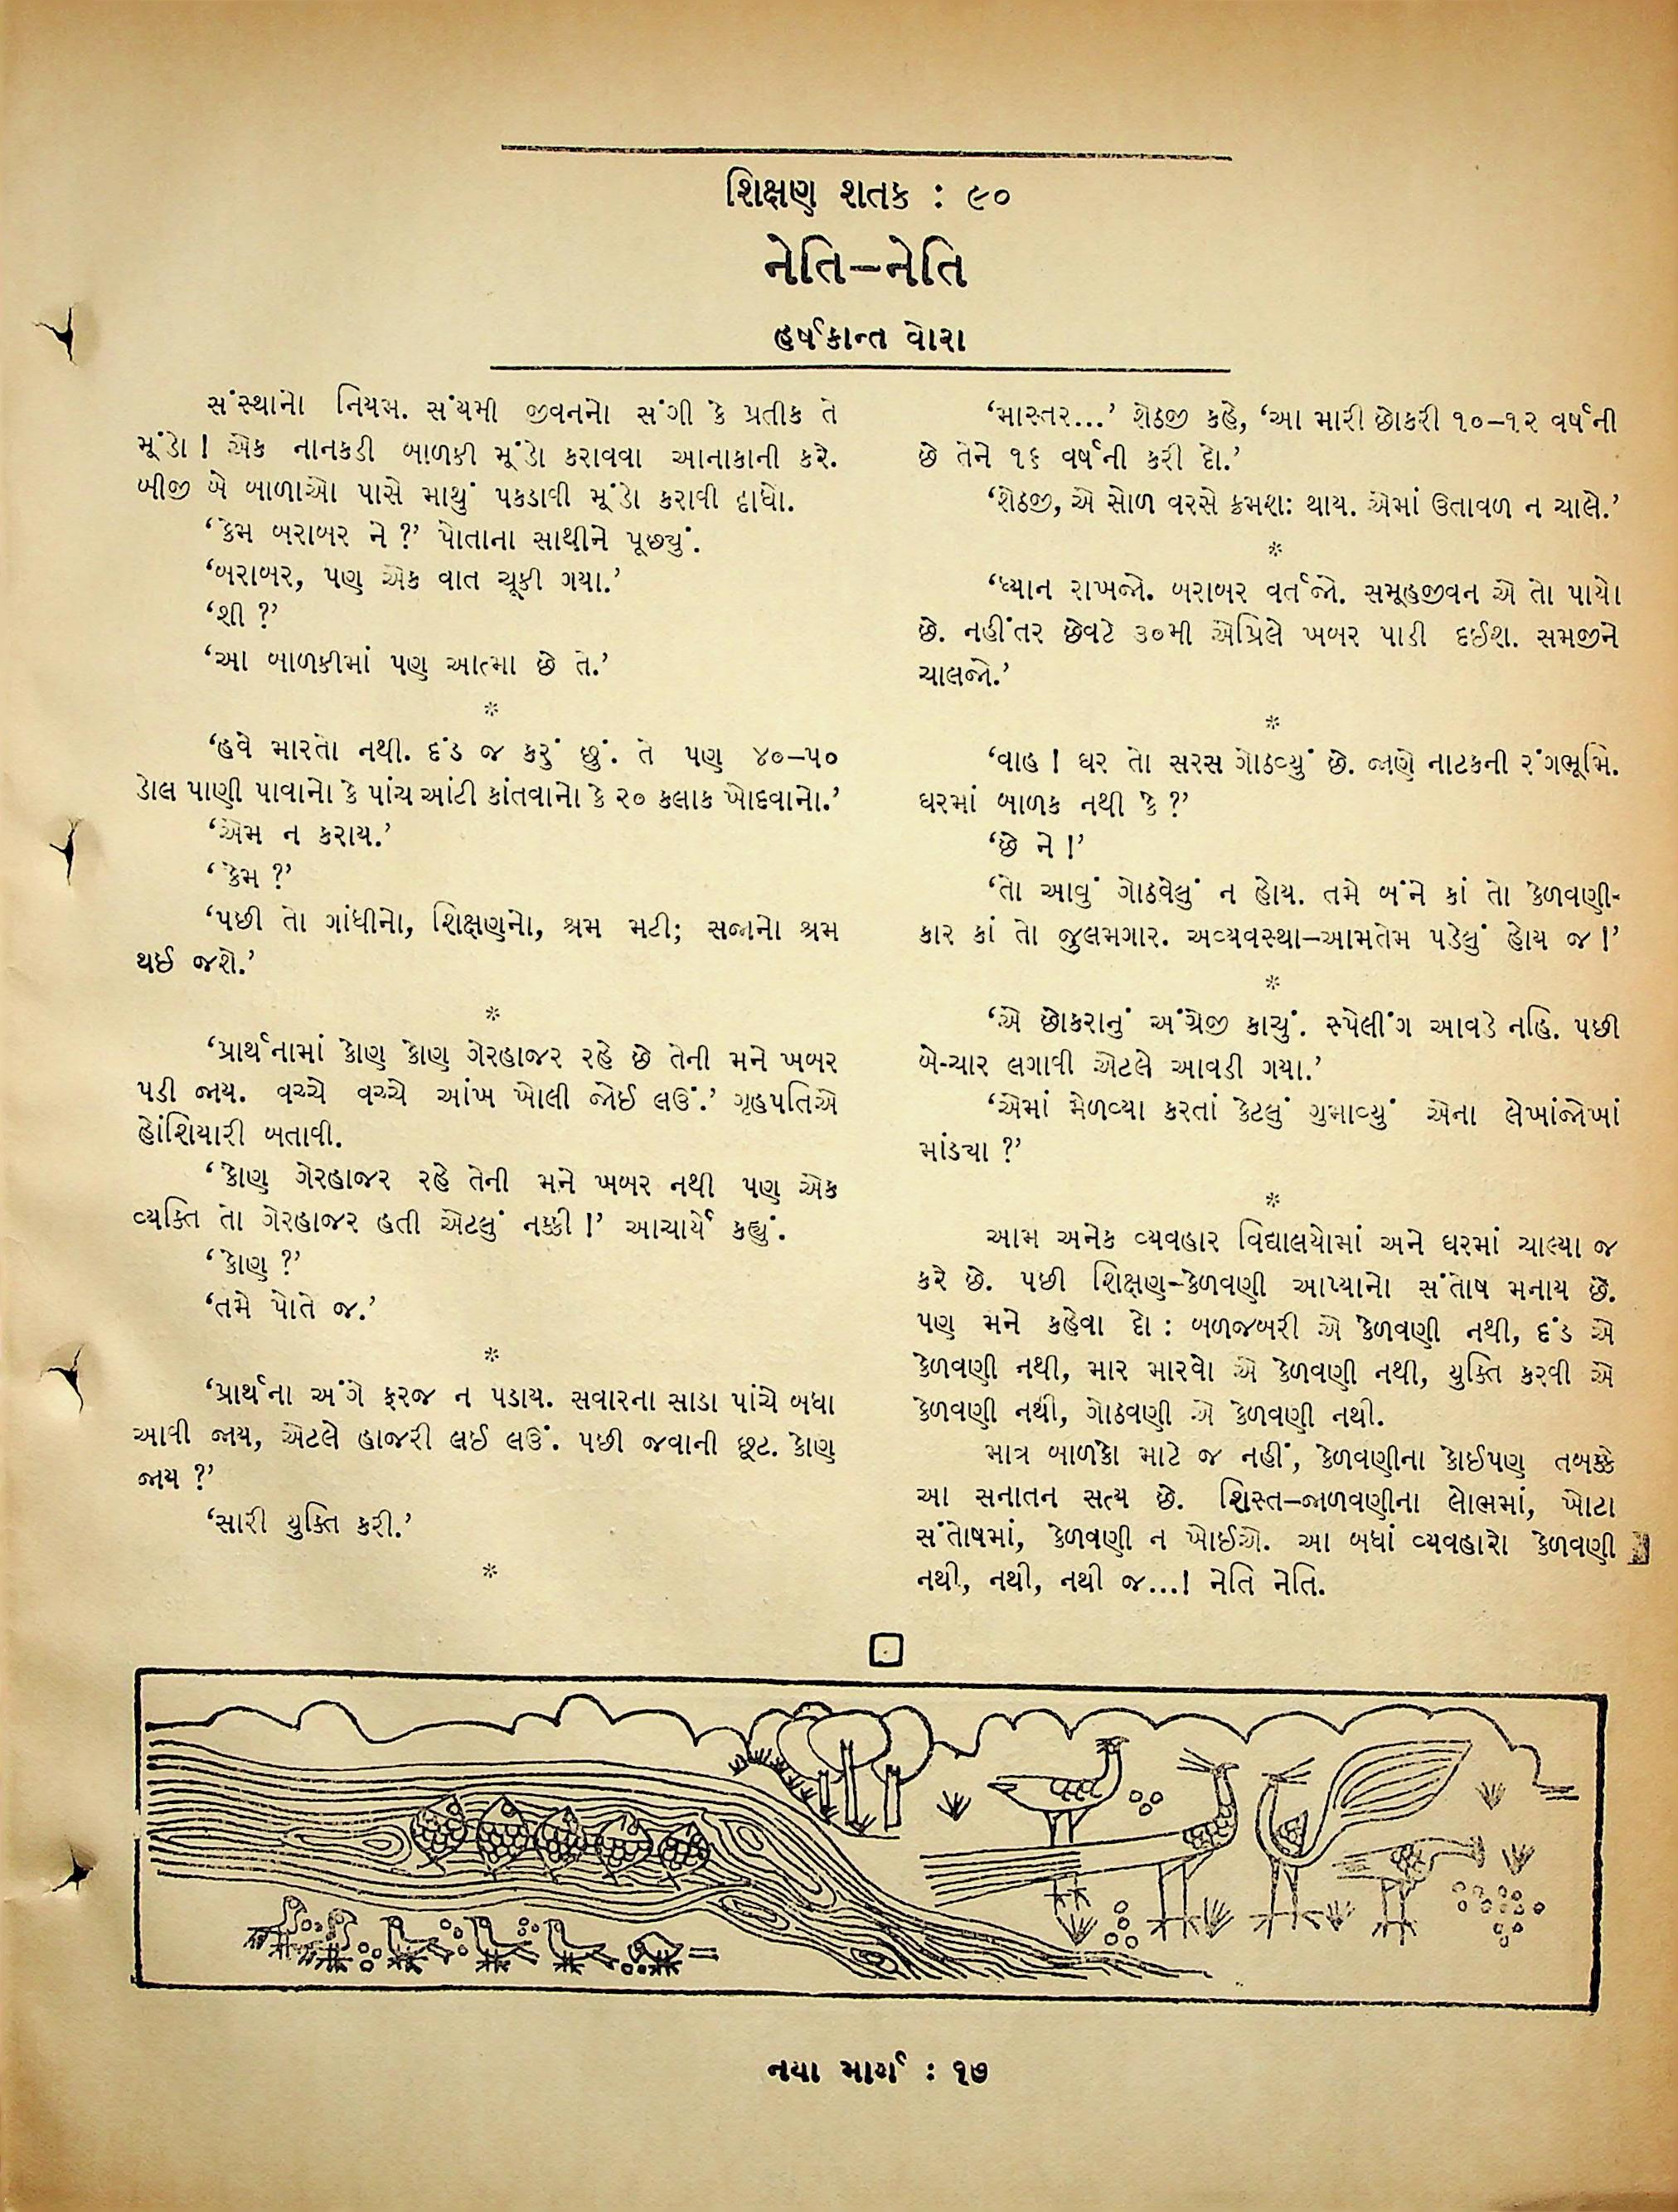 શિક્ષણ શતક : ૯૦
નેતિ–નેતિ
હર્ષકાન્ત વોરા
સંસ્થાનો નિયમ. સંયમી જીવનનો સંગી કે પ્રતીક તે
મૂંડો ! એક નાનકડી બાળકી મૂંડો કરાવવા આનાકાની કરે.
બીજી બે બાળાઓ પાસે માથું પકડાવી મૂંડો કરાવી દીધો.
‘કેમ બરાબર ને ?’ પોતાના સાથીને પૂછ્યું.
‘બરાબર, પણ એક વાત ચૂકી ગયા.’
‘શી ?’
‘આ બાળકીમાં પણ આત્મા છે તે.’
*
‘હવે મારતો નથી. દંડ જ કરું છું. તે પણ ૪૦–૫૦
ડોલ પાણી પાવાનો કે પાંચ આંટી કાંતવાનો કે ૨૦ કલાક ખોદવાનો.’
‘એમ ન કરાય.’
‘કેમ ?’
‘પછી તો ગાંધીનો, શિક્ષણનો, શ્રમ મટી; સજાનો શ્રમ
થઈ જશે.’
*
‘પ્રાર્થનામાં કોણ કોણ ગેરહાજર રહે છે તેની મને ખબર
પડી જાય. વચ્ચે વચ્ચે આંખ ખોલી જોઈ લઉં.’ ગૃહપતિએ
હોંશિયારી બતાવી.
‘કોણ ગેરહાજર રહે તેની મને ખબર નથી પણ એક
વ્યક્તિ તો ગેરહાજર હતી એટલું નક્કી !’ આચાર્યે કહ્યું.
‘કોણ ?’
‘તમે પોતે જ.’
*
‘પ્રાર્થના અંગે ફરજ ન પડાય. સવારના સાડા પાંચે બધા
આવી જાય, એટલે હાજરી લઈ લઉં. પછી જવાની છૂટ. કોણ
જાય ?’
‘સારી યુક્તિ કરી.’
*
‘માસ્તર...’ શેઠજી કહે, ‘આ મારી છોકરી ૧૦–૧૨ વર્ષની
છે તેને ૧૬ વર્ષની કરી દો.’
‘શેઠજી, એ સોળ વરસે ક્રમશઃ થાય. એમાં ઉતાવળ ન ચાલે.’
*
‘ધ્યાન રાખજો. બરાબર વર્તજો. સમૂહજીવન એ તો પાયો
છે. નહીંતર છેવટે ૩૦મી એપ્રિલે ખબર પાડી દઈશ. સમજીને
ચાલજો.’
*
‘વાહ ! ઘર તો સરસ ગોઠવ્યું છે. જાણે નાટકની રંગભૂમિ.
ઘરમાં બાળક નથી કે ?’
‘છે ને !’
‘તો આવું ગોઠવેલું ન હોય. તમે બંને કાં તો કેળવણી-
કાર કાં તો જુલમગાર. અવ્યવસ્થા–આમતેમ પડેલું હોય જ !’
*
‘એ છોકરાનું અંગ્રેજી કાચું. સ્પેલીંગ આવડે નહિ. પછી
બે-ચાર લગાવી એટલે આવડી ગયા.’
‘એમાં મેળવ્યા કરતાં કેટલું ગુમાવ્યું એના લેખાંજોખાં
માંડ્યા ?’
*
આમ અનેક વ્યવહાર વિદ્યાલયોમાં અને ઘરમાં ચાલ્યા જ
કરે છે. પછી શિક્ષણ–કેળવણી આપ્યાનો સંતોષ મનાય છે.
પણ મને કહેવા દો : બળજબરી એ કેળવણી નથી, દંડ એ
કેળવણી નથી, માર મારવો એ કેળવણી નથી, યુક્તિ કરવી એ
કેળવણી નથી, ગોઠવણી એ કેળવણી નથી.
માત્ર બાળકો માટે જ નહીં, કેળવણીના કોઈપણ તબક્કે
આ સનાતન સત્ય છે. શિસ્ત–જાળવણીના લોભમાં, ખોટા
સંતોષમાં, કેળવણી ન ખોઈએ. આ બધાં વ્યવહારો કેળવણી
નથી, નથી, નથી જ...! નેતિ નેતિ.
નયા માર્ગ : ૧૭